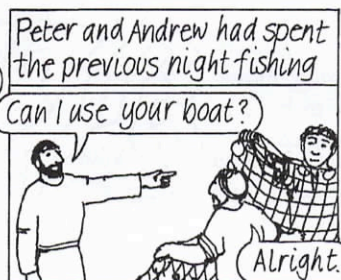 Peter and Andrew had spent
the previous night fishing
Can I use your boat?
Alright.